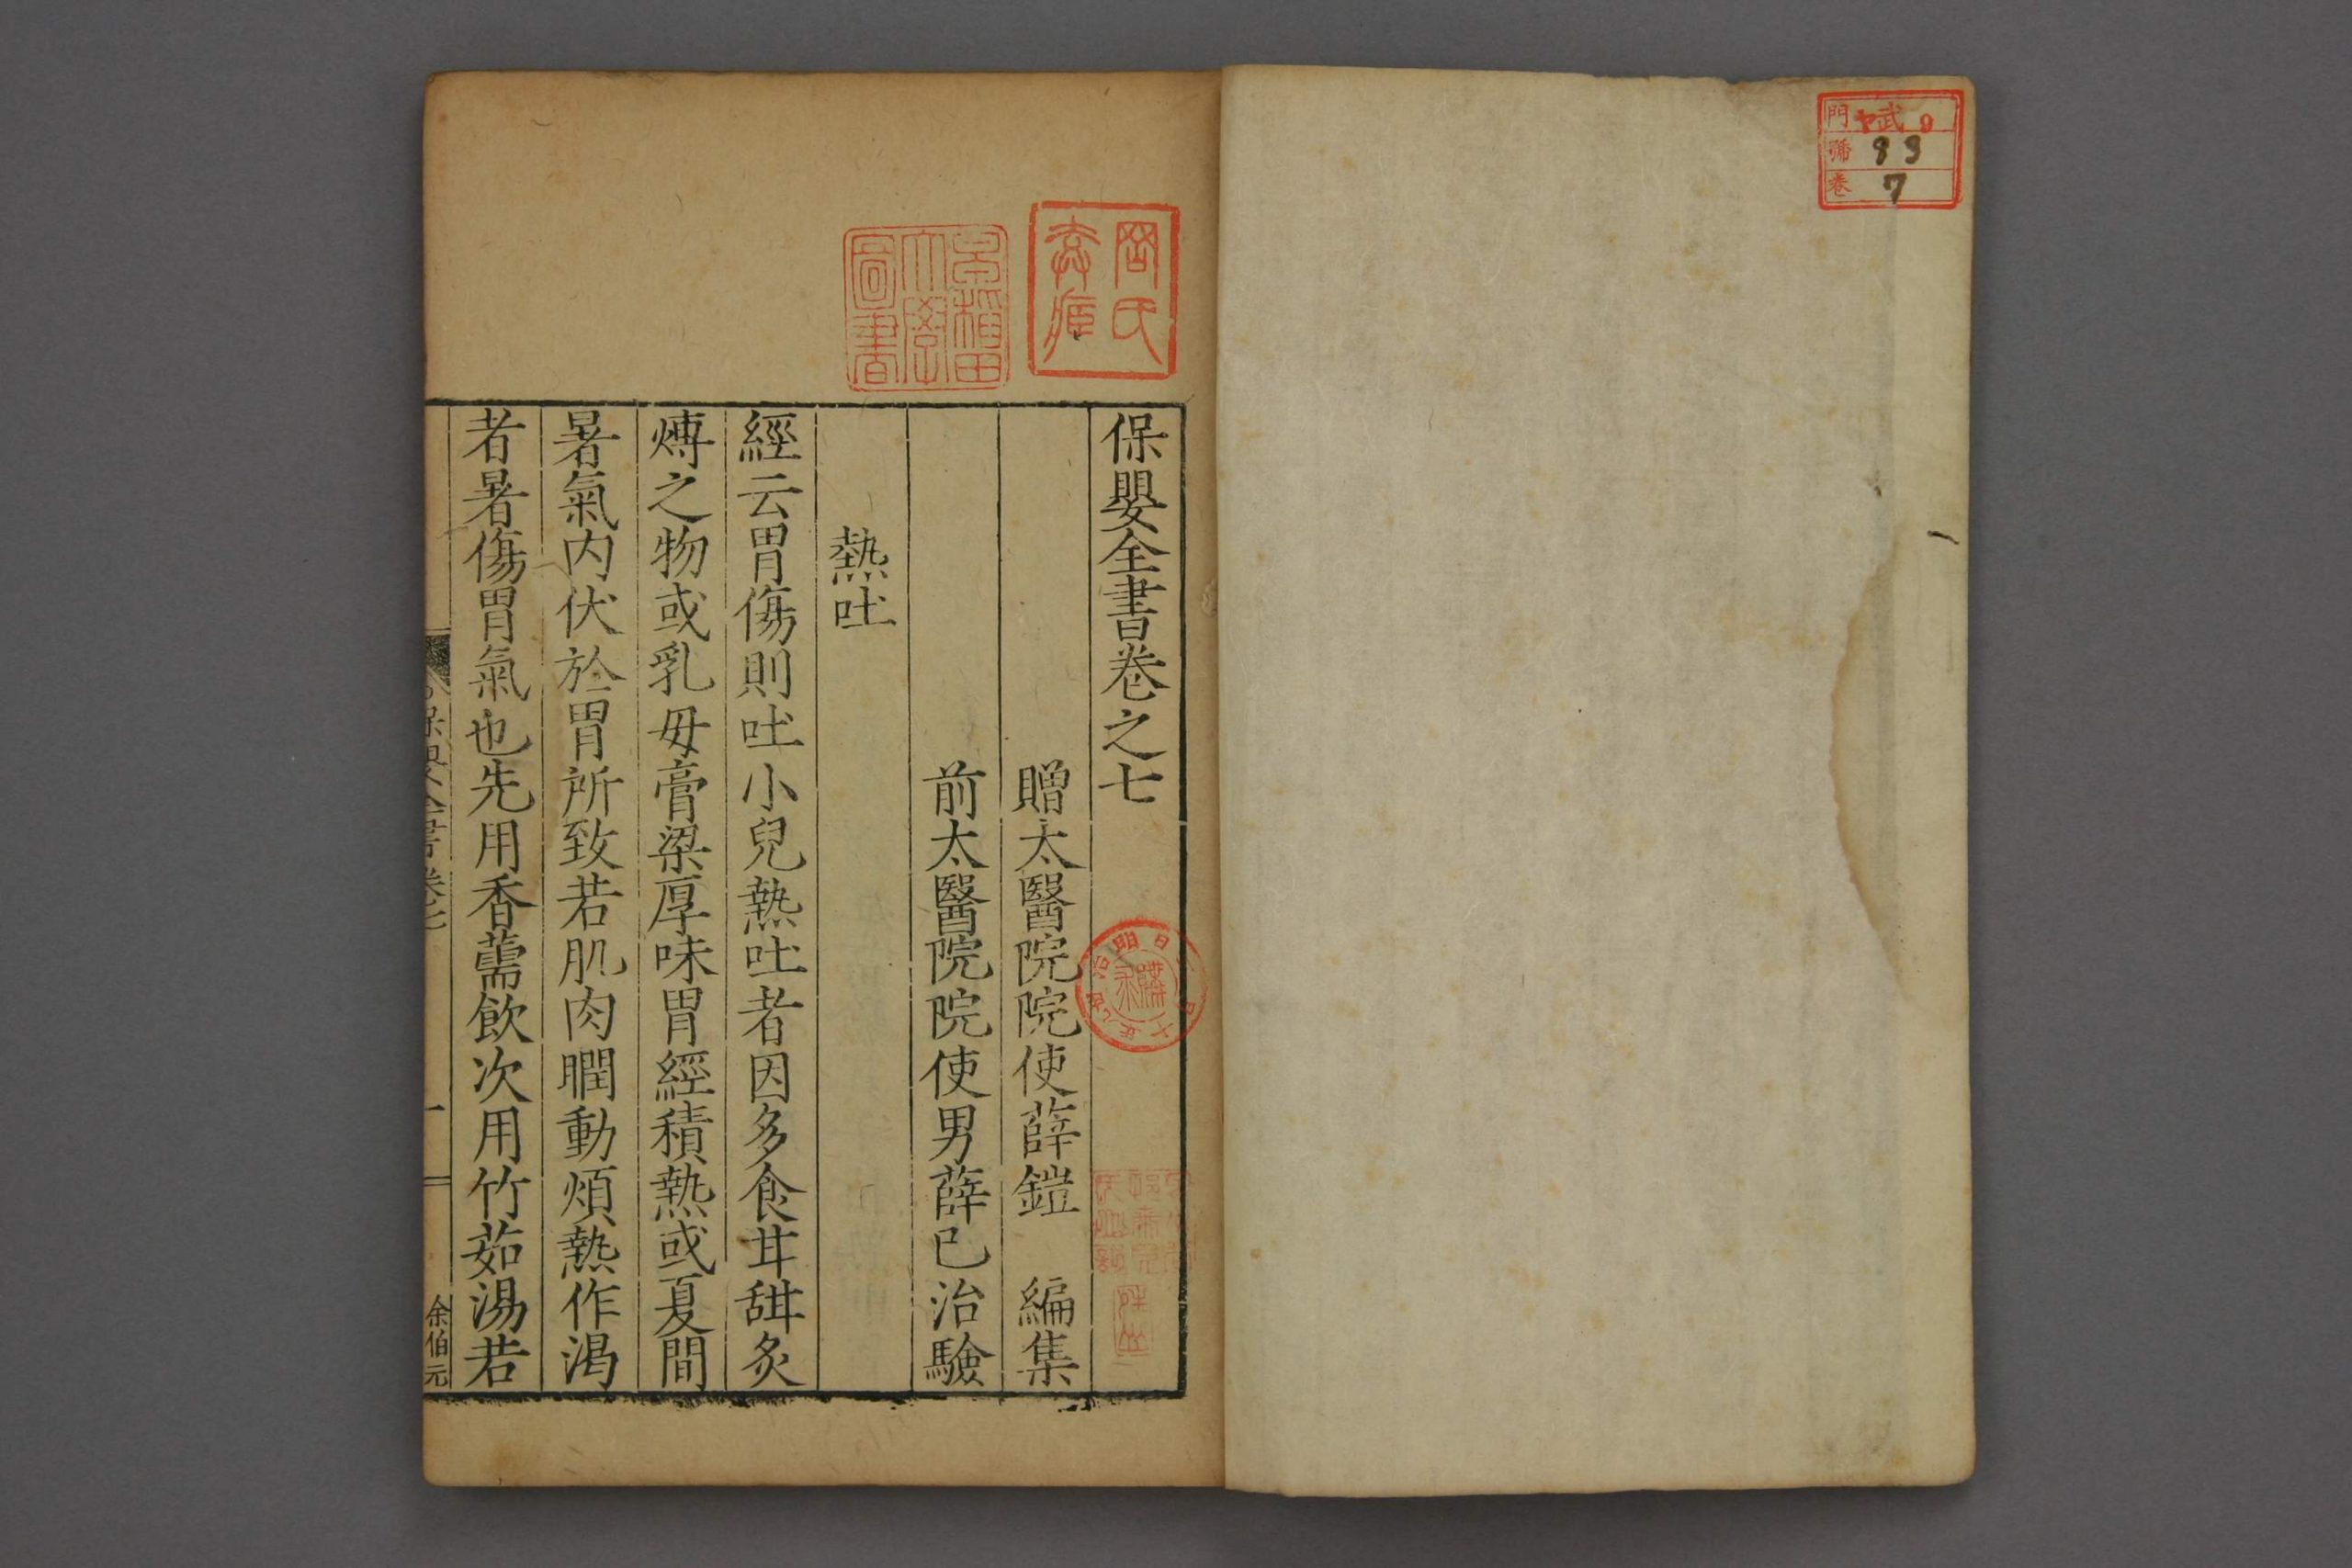 門 武 9
號 83
卷 7
保嬰全書卷之七
贈太醫院院使薛鎧 編集
前太醫院院使男薛已治驗
熱吐
經云胃傷則吐小兒熱吐者因多食甘甜炙
煿之物或乳母膏粱厚味胃經積熱或夏間
暑氣内伏於胃所致若肌肉瞤動煩熱作渴
者暑傷胃氣也先用香薷飲次用竹茹湯若
保嬰全書卷七
一
余伯元
早稻田
大學
圖書